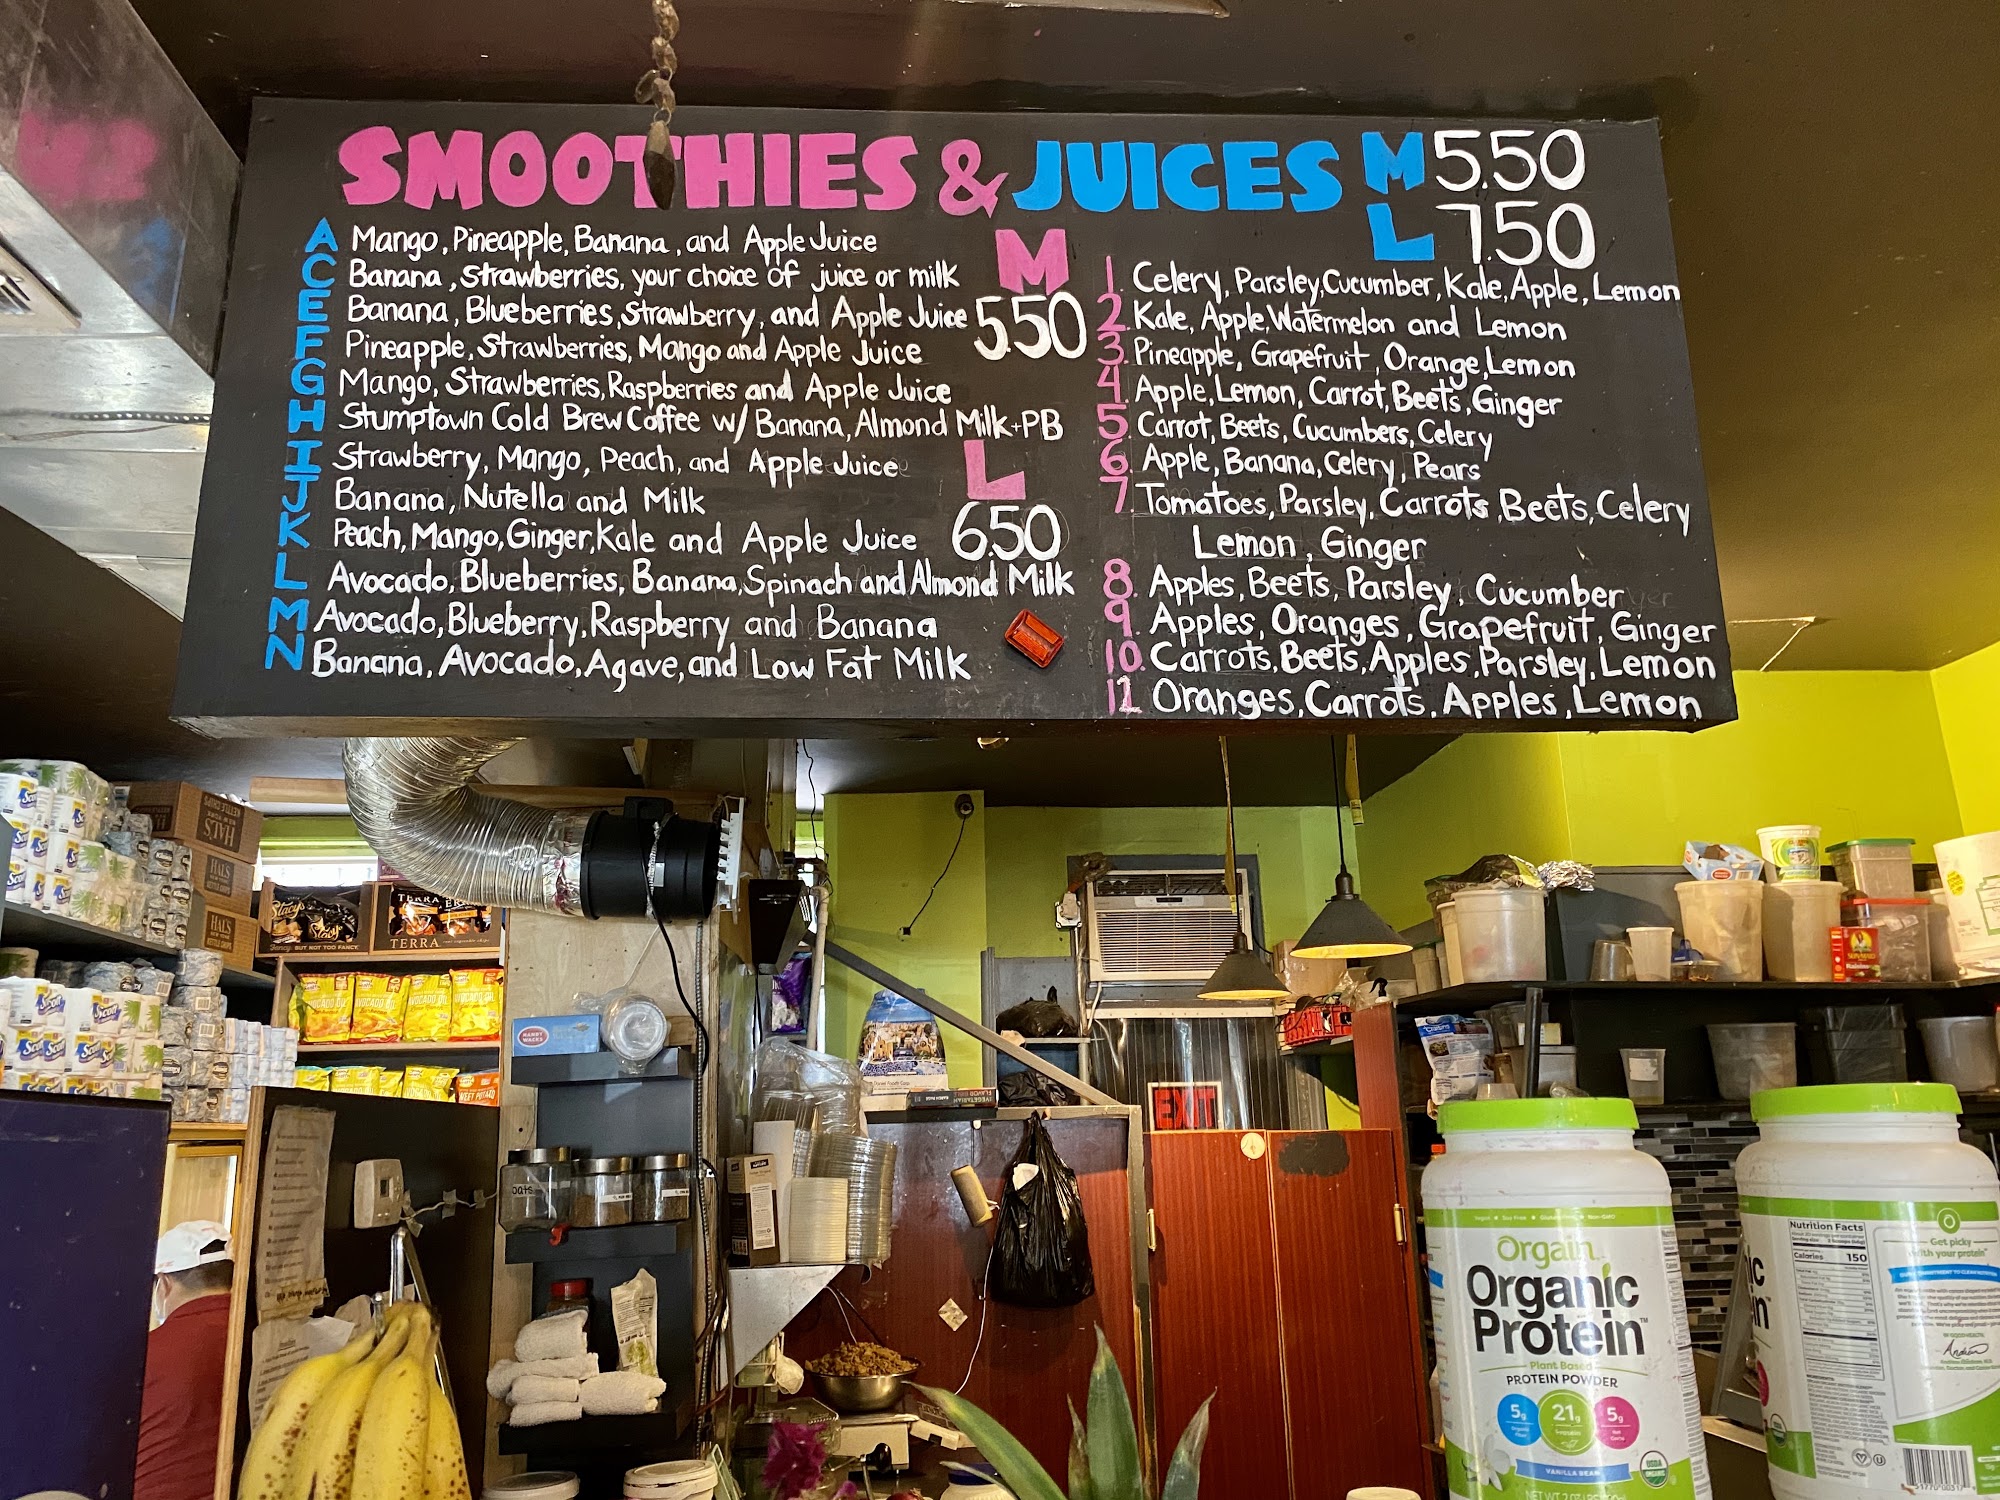 SMOOTHIES & JUICES M 5.50
L 7.50
A Mango, Pineapple, Banana, and Apple Juice
C Banana, Strawberries, your choice of juice or milk
E Banana, Blueberries, Strawberry, and Apple Juice
F Pineapple, Strawberries, Mango and Apple Juice
G Mango, Strawberries, Raspberries and Apple Juice
H Stumptown Cold Brew Coffee w/ Banana, Almond Milk+PB
I Strawberry, Mango, Peach, and Apple Juice
J Banana, Nutella and Milk
K Peach, Mango, Ginger, Kale and Apple Juice
L Avocado, Blueberries, Banana, Spinach and Almond Milk
M Avocado, Blueberry, Raspberry and Banana
N Banana, Avocado, Agave, and Low Fat Milk
M
5.50
L
6.50
1. Celery, Parsley, Cucumber, Kale, Apple, Lemon
2. Kale, Apple, Watermelon and Lemon
3. Pineapple, Grapefruit, Orange, Lemon
4. Apple, Lemon, Carrot, Beets, Ginger
5. Carrot, Beets, Cucumbers, Celery
6. Apple, Banana, Celery, Pears
7. Tomatoes, Parsley, Carrots, Beets, Celery
Lemon, Ginger
8. Apples, Beets, Parsley, Cucumber
9. Apples, Oranges, Grapefruit, Ginger
10. Carrots, Beets, Apples, Parsley, Lemon
11 Oranges, Carrots, Apples, Lemon
HAL'S
HAL'S
HAL'S
KETTLE CHIPS
Stacy's
BUT NOT TOO FANCY
TERRA
TERRA
AVOCADO OIL
AVOCADO OIL
Scott
Scott
HANDY
WACKS
oats
EXIT
SUN-MAID
Raisins
Orgain
Organic
Protein
Plant Based
PROTEIN POWDER
5g
21g
5g
VANILLA BEAN
USDA
ORGANIC
Nutrition Facts
Calories 150
Get picky
with your protein